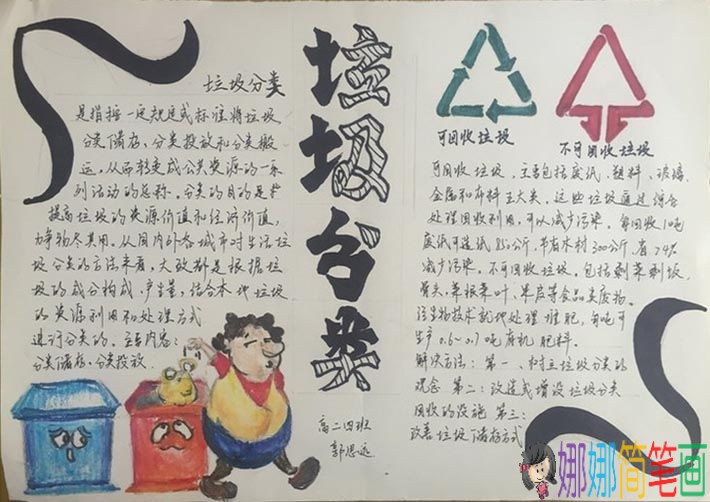 垃圾分类
是指按一定规定或标准将垃圾
分类储存、分类投放和分类搬
运,从而转变成公共资源的一系
列活动的总称。分类的目的是
提高垃圾的资源价值和经济价值,
力争物尽其用。从国内外各城市对生活垃
圾分类的方法来看,大致都是根据垃
圾的成分构成、产生量,结合本地垃圾
的资源利用和处理方式
进行分类的。主要内容:
分类储存、分类投放
垃圾分类
高二四班
郭思远
可回收垃圾
不可回收垃圾
可回收垃圾,主要包括废纸、塑料、玻璃、
金属和布料五大类,这些垃圾通过综合
处理回收利用,可以减少污染。每回收1吨
废纸可造纸850公斤,节省木材300公斤,省74%
减少污染。不可回收垃圾,包括剩菜剩饭、
骨头、菜根菜叶、果皮等食品类废物。
生物技术就地处理堆肥,每吨可
生产0.6~0.7吨有机肥料。
解决方法:第一、树立垃圾分类的
观念 第二:改造或增设垃圾分类
回收的设施 第三:
改善垃圾储存方式
娜娜简笔画